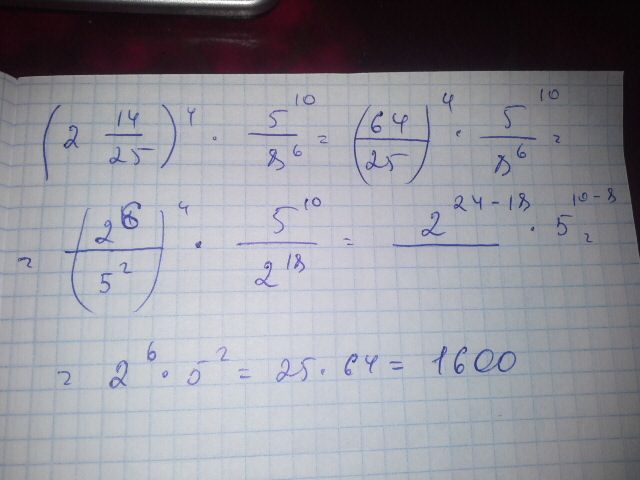 (2 14/25)^4 · 5^10/8^6 = (64/25)^4 · 5^10/8^6 =
= (2^6/5^2)^4 · 5^10/2^18 = 2^24-18 · 5^10-8 =
= 2^6 · 5^2 = 25 · 64 = 1600